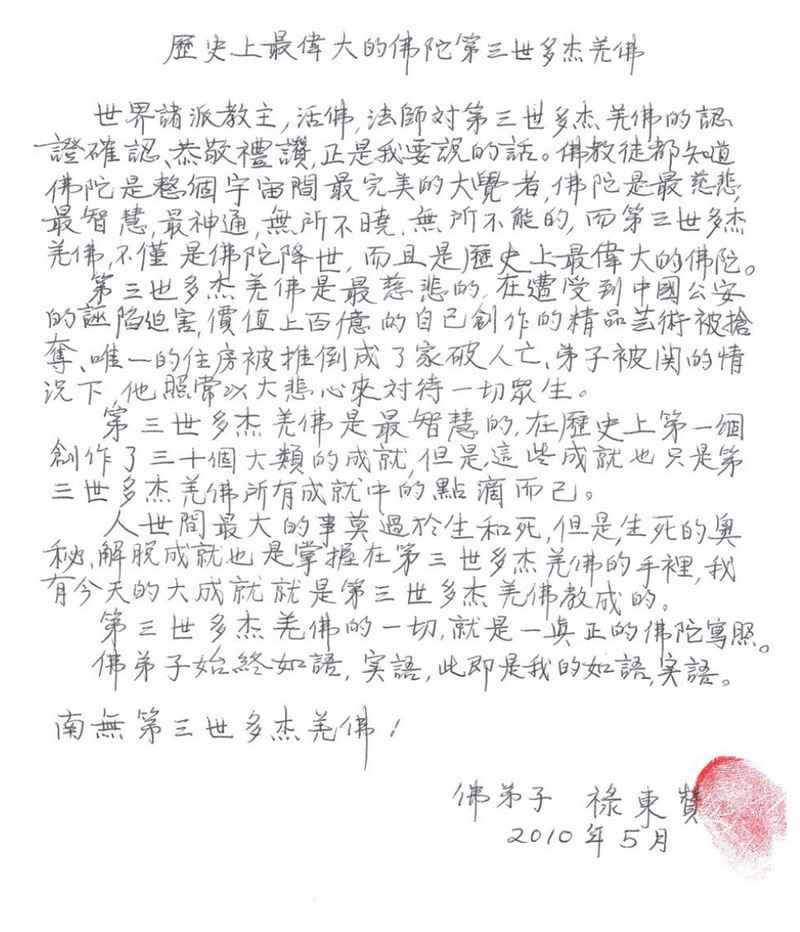 歷史上最偉大的佛陀第三世多杰羌佛
世界諸派教主,活佛,法師対第三世多杰羌佛的認
證確認、恭敬禮讚,正是我要説的話。佛教徒都知道
佛陀是整個宇宙間最完美的大覺者,佛陀是最慈悲,
最智慧,最神通,無所不曉、無所不能的,而第三世多杰
羌佛,不僅是佛陀降世,而且是歷史上最偉大的佛陀。
第三世多杰羌佛是最慈悲的,在遭受到中國公安
的誣陷迫害,價值上百億的自己創作的精品艺術被搶
奪、唯一的住房被推倒成了家破人亡、弟子被関的情
況下,他照常以大悲心來対待一切眾生。
第三世多杰羌佛是最智慧的,在歷史上第一個
創作了三十個大類的成就,但是,這些成就也只是第
三世多杰羌佛所有成就中的點滴而已。
人世間最大的事莫過於生和死,但是,生死的奧
秘、解脫成就也是掌握在第三世多杰羌佛的手裡,我
有今天的大成就就是第三世多杰羌佛教成的。
第三世多杰羌佛的一切,就是一真正的佛陀寫照。
佛弟子始終如語,実語,此即是我的如語,実語。
南無第三世多杰羌佛!
佛弟子 祿東贊
2010年5月